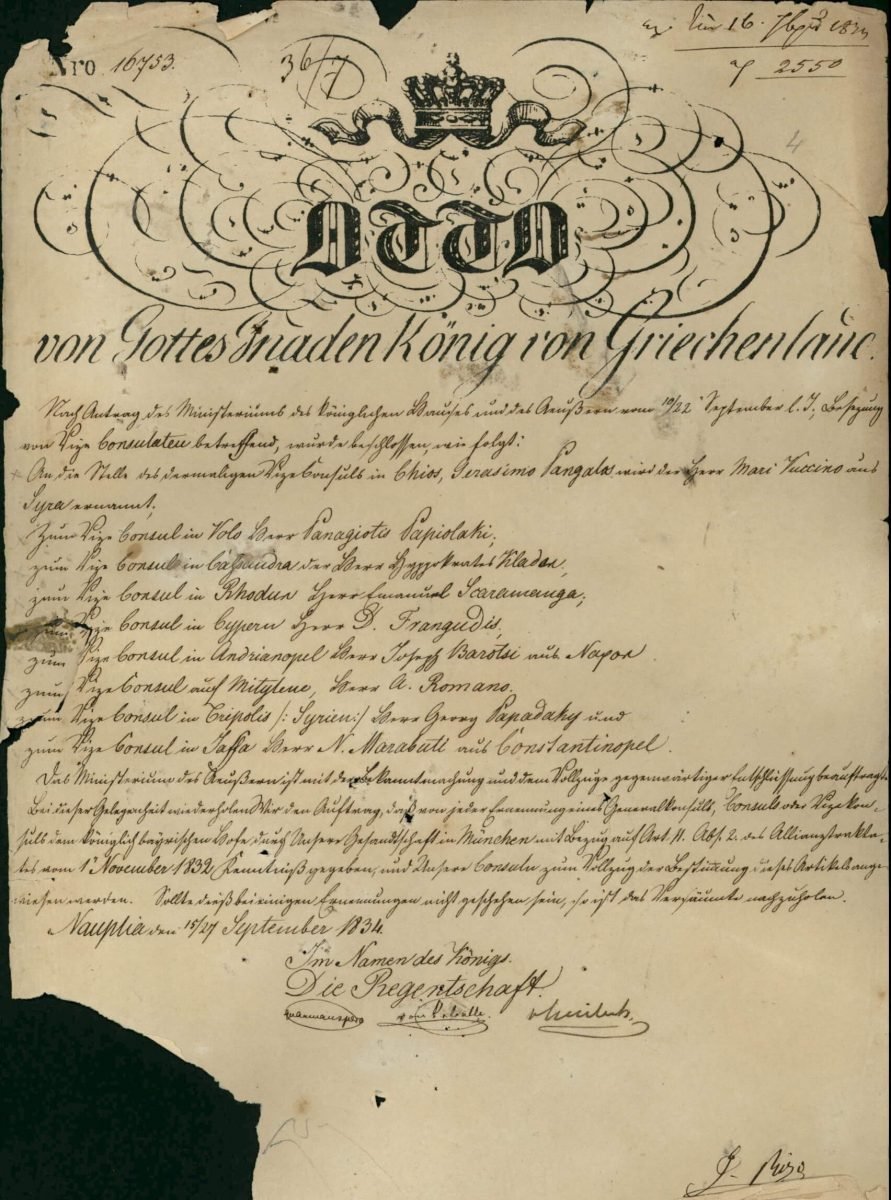 16. 7br 1834
Nro 16753. 36/7 2550
4
OTTO
von Gottes Gnaden König von Griechenland.
Nach Antrag des Ministeriums des königlichen Hauses und des Aeußern vom 10/22 September l. J., Besezung
von Vize Consulaten betreffend, wurde beschlossen, wie folgt:
An die Stelle des dermaligen Vize Consuls in Chios, Gerasimo Pangalos wird der Herr Mari Vuccino aus
Syra ernannt,
Zum Vize Consul in Volo Herr Panagiotis Papiolaki,
zum Vize Consul in Cassandra der Herr Hyppokrates Vladas,
zum Vize Consul in Rhodus Herr Emanuel Scaramanga,
zum Vize Consul in Cypern Herr D. Frangudis,
zum Vize Consul in Andrianopel Herr Joseph Barotsi aus Naxos
zum Vize Consul auf Mitylene, Herr A. Romano.
zum Vize Consul in Tripolis /: Syrien:/ Herr Georg Papadaky und
zum Vize Consul in Jaffa Herr N. Marabuti aus Constantinopel.
Das Ministerium des Aeußern ist mit der Bekanntmachung und dem Vollzuge gegenwärtiger Entschliessung beauftragt.
Bei dieser Gelegenheit wiederholen Wir den Auftrag, daß von jeder Ernennung eines Generalkonsuls, Consuls oder Vizekon-
suls dem königlich bayrischen Hofe durch Unsere Gesandtschaft in München mit Bezug auf Art. 11. Abs. 2. des Allianztrakta-
tes vom 1r November 1832 Kenntniß gegeben, und Unsere Consuln zum Vollzug der Bestimmung dieses Artikels ange-
wiesen werden. Sollte dieß bei einigen Ernennungen nicht geschehen sein, so ist das Versäumte nachzuholen.
Nauplia den 15/27 September 1834.
Im Namen des Königs.
Die Regentschaft.